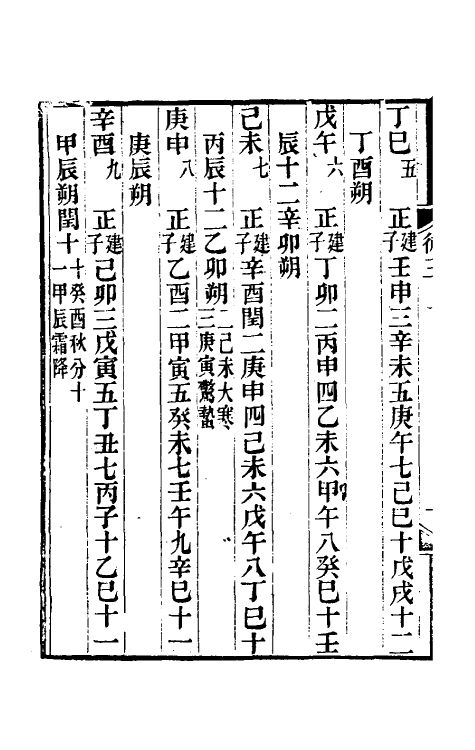 丁巳五 正建子壬申三辛未五庚午七己巳十戊戌十二
丁酉朔
戊午六 正建子丁卯二丙申四乙未六甲午八癸巳十壬
辰十二辛卯朔
己未七 正建子辛酉閏二庚申四己未六戊午八丁巳十
丙辰十二乙卯朔二己未大寒三庚寅驚蟄
庚申八 正建子乙酉二甲寅五癸未七壬午九辛巳十一
庚辰朔
辛酉九 正建子己卯三戊寅五丁丑七丙子十乙巳十一
甲辰朔閏十十癸酉秋分十一甲辰霜降